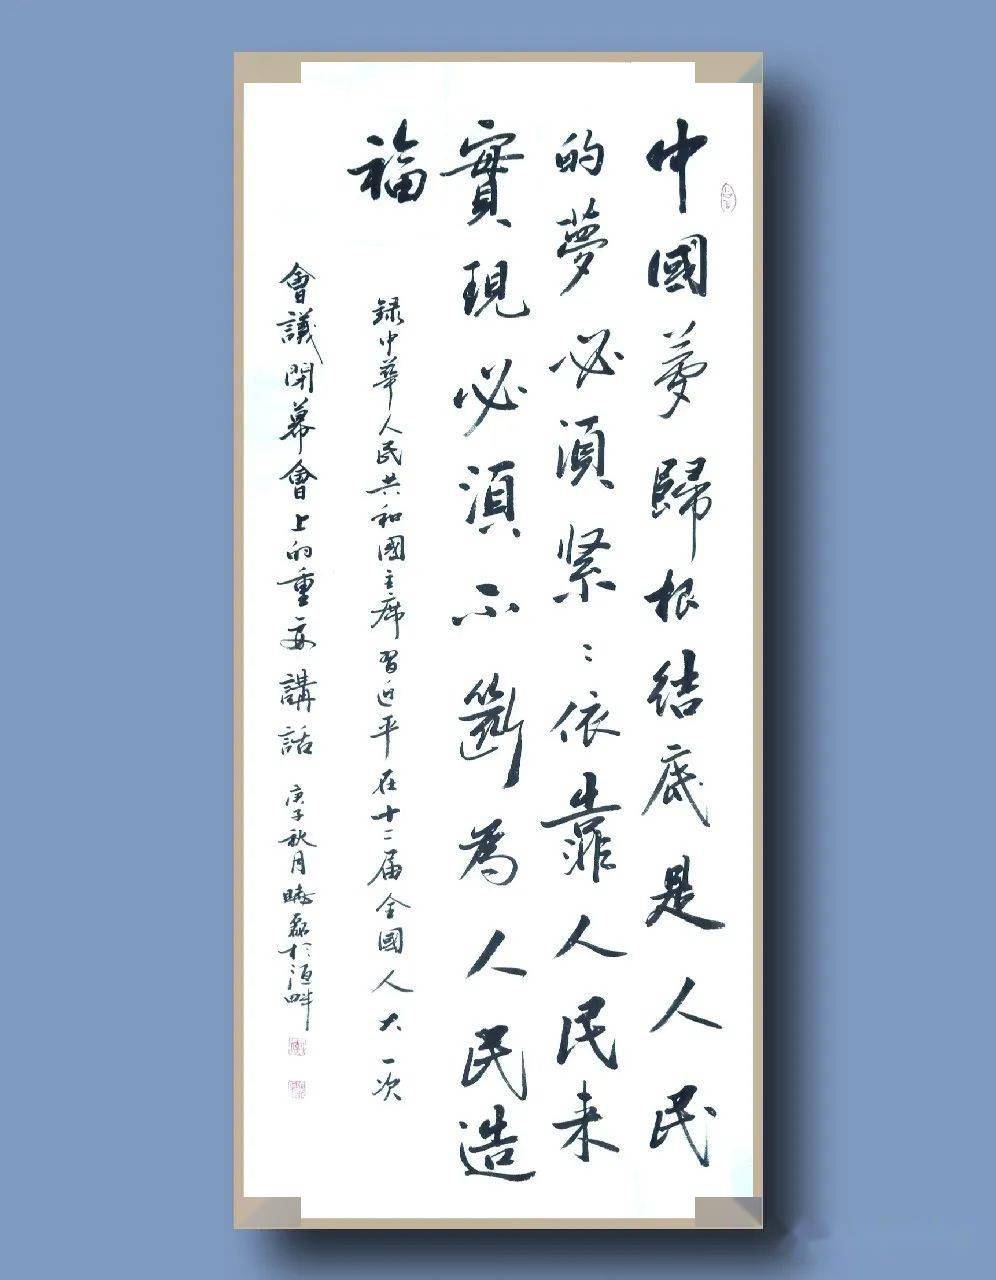 中國夢歸根結底是人民
的夢必須緊〻依靠人民来
實現必須不斷為人民造
福
録中華人民共和國主席習近平在十二届全國人大一次
會議閉幕會上的重要講話 庚子秋月曉磊於洹畔